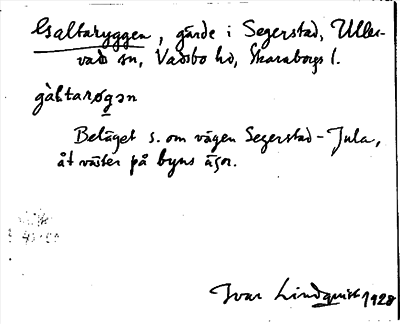 Galtaryggen, gärde i Segerstad, Uller-
vads sn, Vadsbo hd, Skaraborgs l.
gàltarøgən
Beläget s. om vägen Segerstad - Jula,
åt väster på byns ägor.
Ivar Lindquist 1928